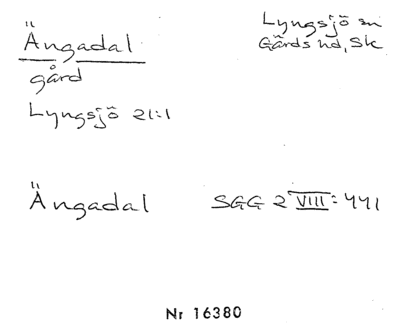 Ängadal
Lyngsjö sn
Gärds hd, Sk
gård
Lyngsjö 21:1
Ängadal SGG 2 VIII: 441
Nr 16380